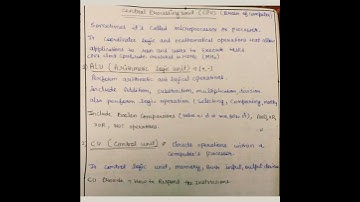 Central Processing Unit (CPU) (Brain of Computer)
Sometimes it's called microprocessor or processor.
It coordinates logic and mathematical operations that allow
applications to run and users to execute tasks
CPU clock speed measured in
1) ALU (Arithmetic logic unit) :- (+,-)
Perform arithmetic and logical operations.
Include Addition, Subtraction, multiplication, division
also perform logic operations (Selecting, Comparing, matching
Include Boolean Comparisons
XOR, NOT operations.
CU (Control unit) :- Directs operations within a
Computer's Processor.
It control logic unit, memory, both input, output devices
CU Decode → How to Respond the Instructions